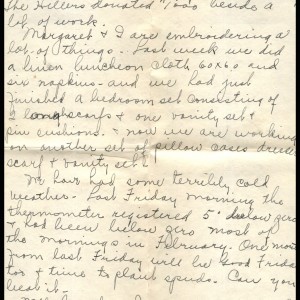 The Hellers donated $1000 beside a
lot of work.
Margaret & I are embroidering a
lot of things. Last week we did
a linen luncheon cloth 60x60 and
six napkins - and we had just
finished a bedroom set consisting of
2 long scarfs & one vanity set &
pin cushions. & now we are working
on another set of pillow cases dresser
scarf & vanity set.
We have had some terribly cold
weather. Last Friday morning the
thermometer registered 5° below zero
& had been below zero most of
the mornings in February. One mo
from last Friday will be Good Friday
& time to plant spuds. Can you
beat it.